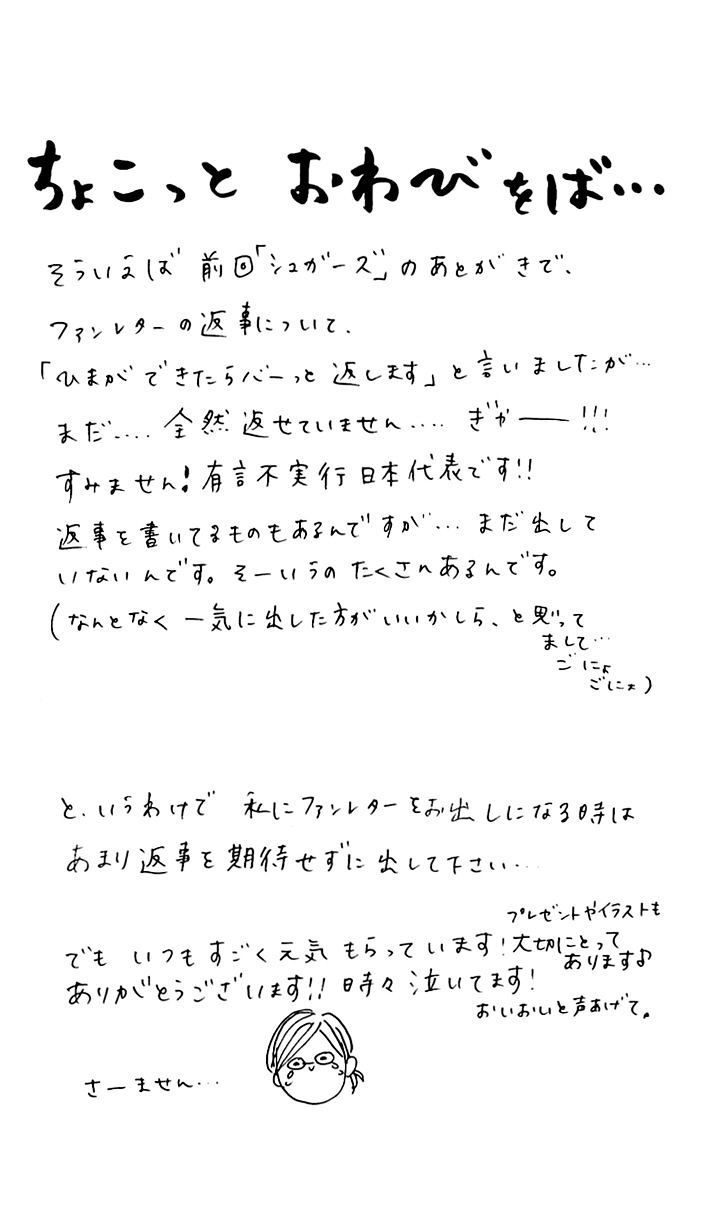 ちょこっと おわびをば…
そういえば 前回「シュガーズ」のあとがきで、
ファンレターの返事について、
「ひまができたらバーっと返します」と言いましたが…
まだ…. 全然返せていません…. ぎゃー!!!
すみません!有言不実行日本代表です!!
返事を書いてるものもあるんですが… まだ出して
いないんです。そーいうのたくさんあるんです。
(なんとなく一気に出した方がいいかしら、と思って
まして…
ごにょ
ごにょ)
と、いうわけで 私にファンレターをお出しになる時は
あまり返事を期待せずに出して下さい…
でも いつもすごく元気もらっています!
プレゼントやイラストも
大切にとって
あります♪
ありがとうございます!!時々泣いてます!
おいおいと声あげて。
さーません…